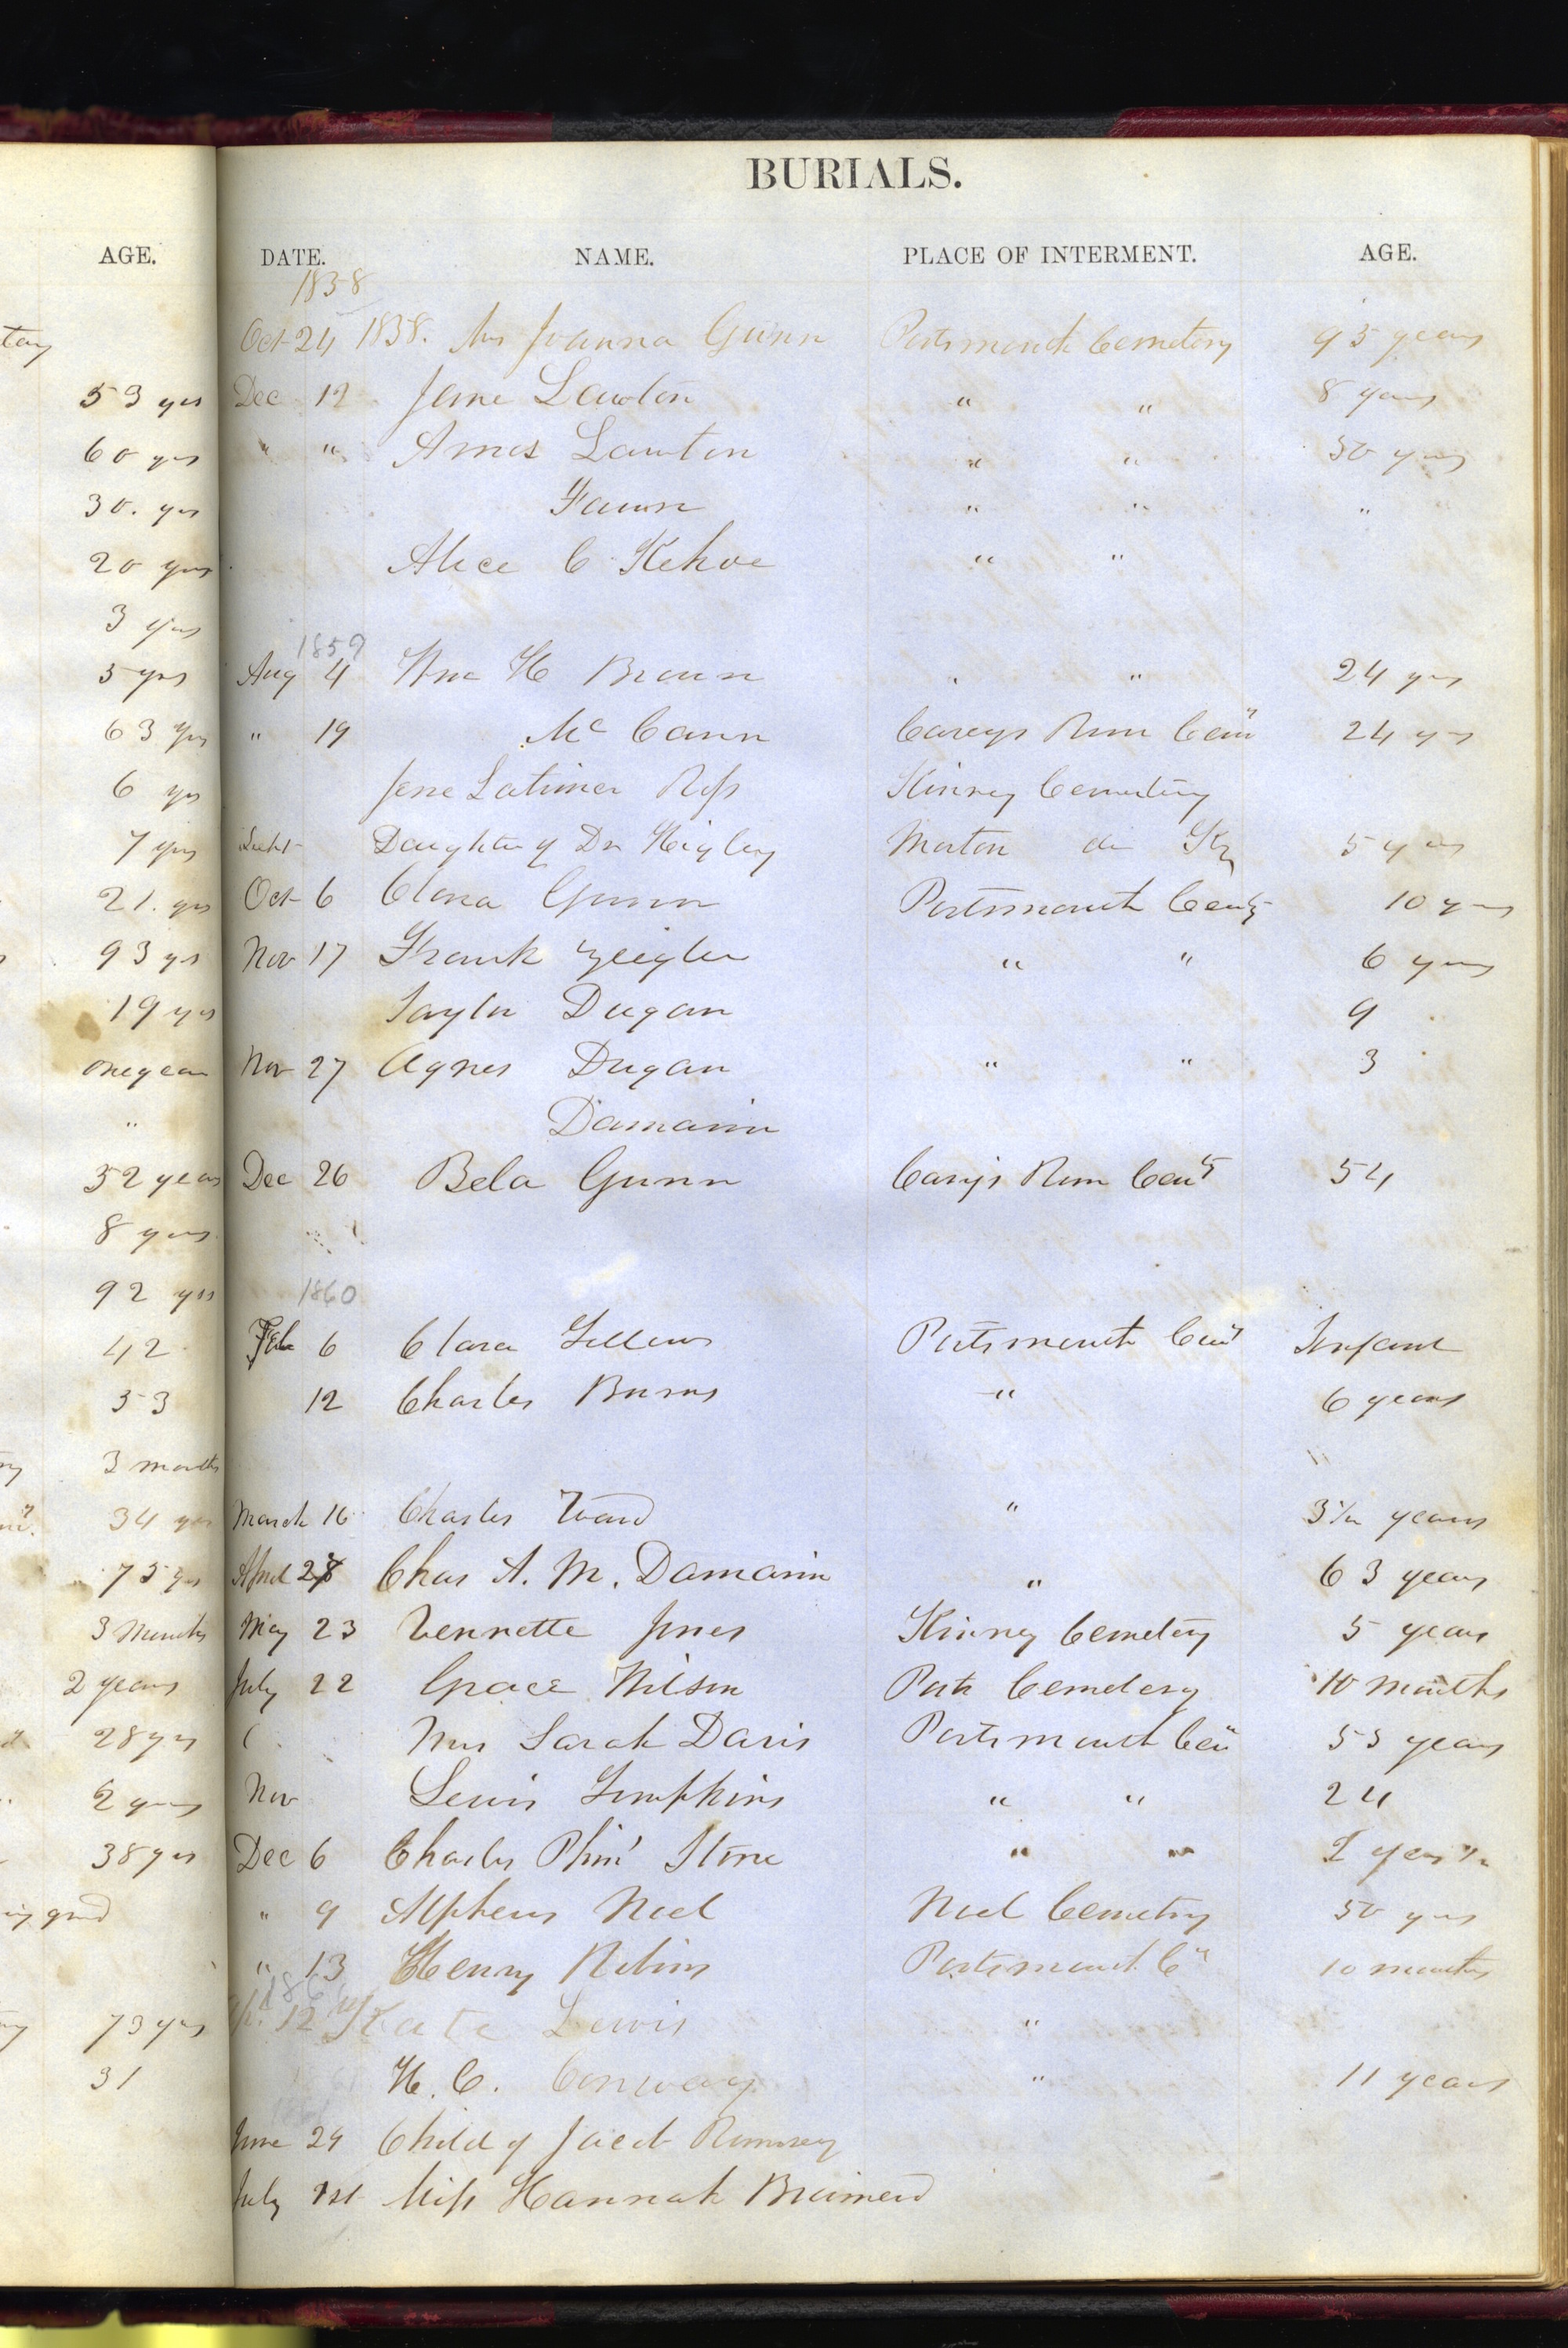 BURIALS.
AGE. DATE. NAME. PLACE OF INTERMENT. AGE.
1858
Oct 24 1858. Mrs Joanna Gunn Portsmouth Cemetery 93 years
53 yrs Dec 12 Jane Lawton " " 8 years
60 yrs " " Ames Lawton " " 30 years
30. yrs Fawn " " "
20 yrs Alice C Kehoe " "
3 yrs
1859
5 yrs Aug 4 Wm H Brown " 24 yrs
63 yrs " 19 Mc Cann Careys Run Cem 24 yrs
6 yrs Jane Latimer Ross Kinney Cemetery
7 yrs Daughter of Dr Higley 5 yrs
21. yrs Oct 6 Clara Gunn Portsmouth Cemty 10 yrs
93 yrs Nov 17 Frank Zeigler " " 6 yrs
19 yrs Taylor Dugan 9
one year Nov 27 Agnes Dugan " " 3
" Damarin
52 years Dec 26 Bela Gunn Carys Run Cemty 54
8 yrs
92 yrs 1860
42 Feb 6 Clara Portsmouth Cem Infant
53 12 Charles Burns " 6 years
3 months
34 yrs March 16 Charles Ward " 3½ years
75 yrs April 28 Chas A. M. Damarin " 63 years
3 Months May 23 Vennette Jones Kinney Cemetery 5 years
2 years July 22 Grace Wilson Ports Cemetery 10 months
28 yrs Mrs Sarah Davis Portsmouth Cem 53 years
2 years Nov Lewis Tompkins " " 24
38 yrs Dec 6 Charles Stone " " 2 years ½
" 9 Alpheus Noel Noel Cemetry 50 yrs
" 13 Henry Portsmouth C" 10 months
186
73 yrs 12 Kate Lewis "
31 H. C. Conway " 11 years
June 24 Child of Jacob Rumsey
July 1st Miss Hannah